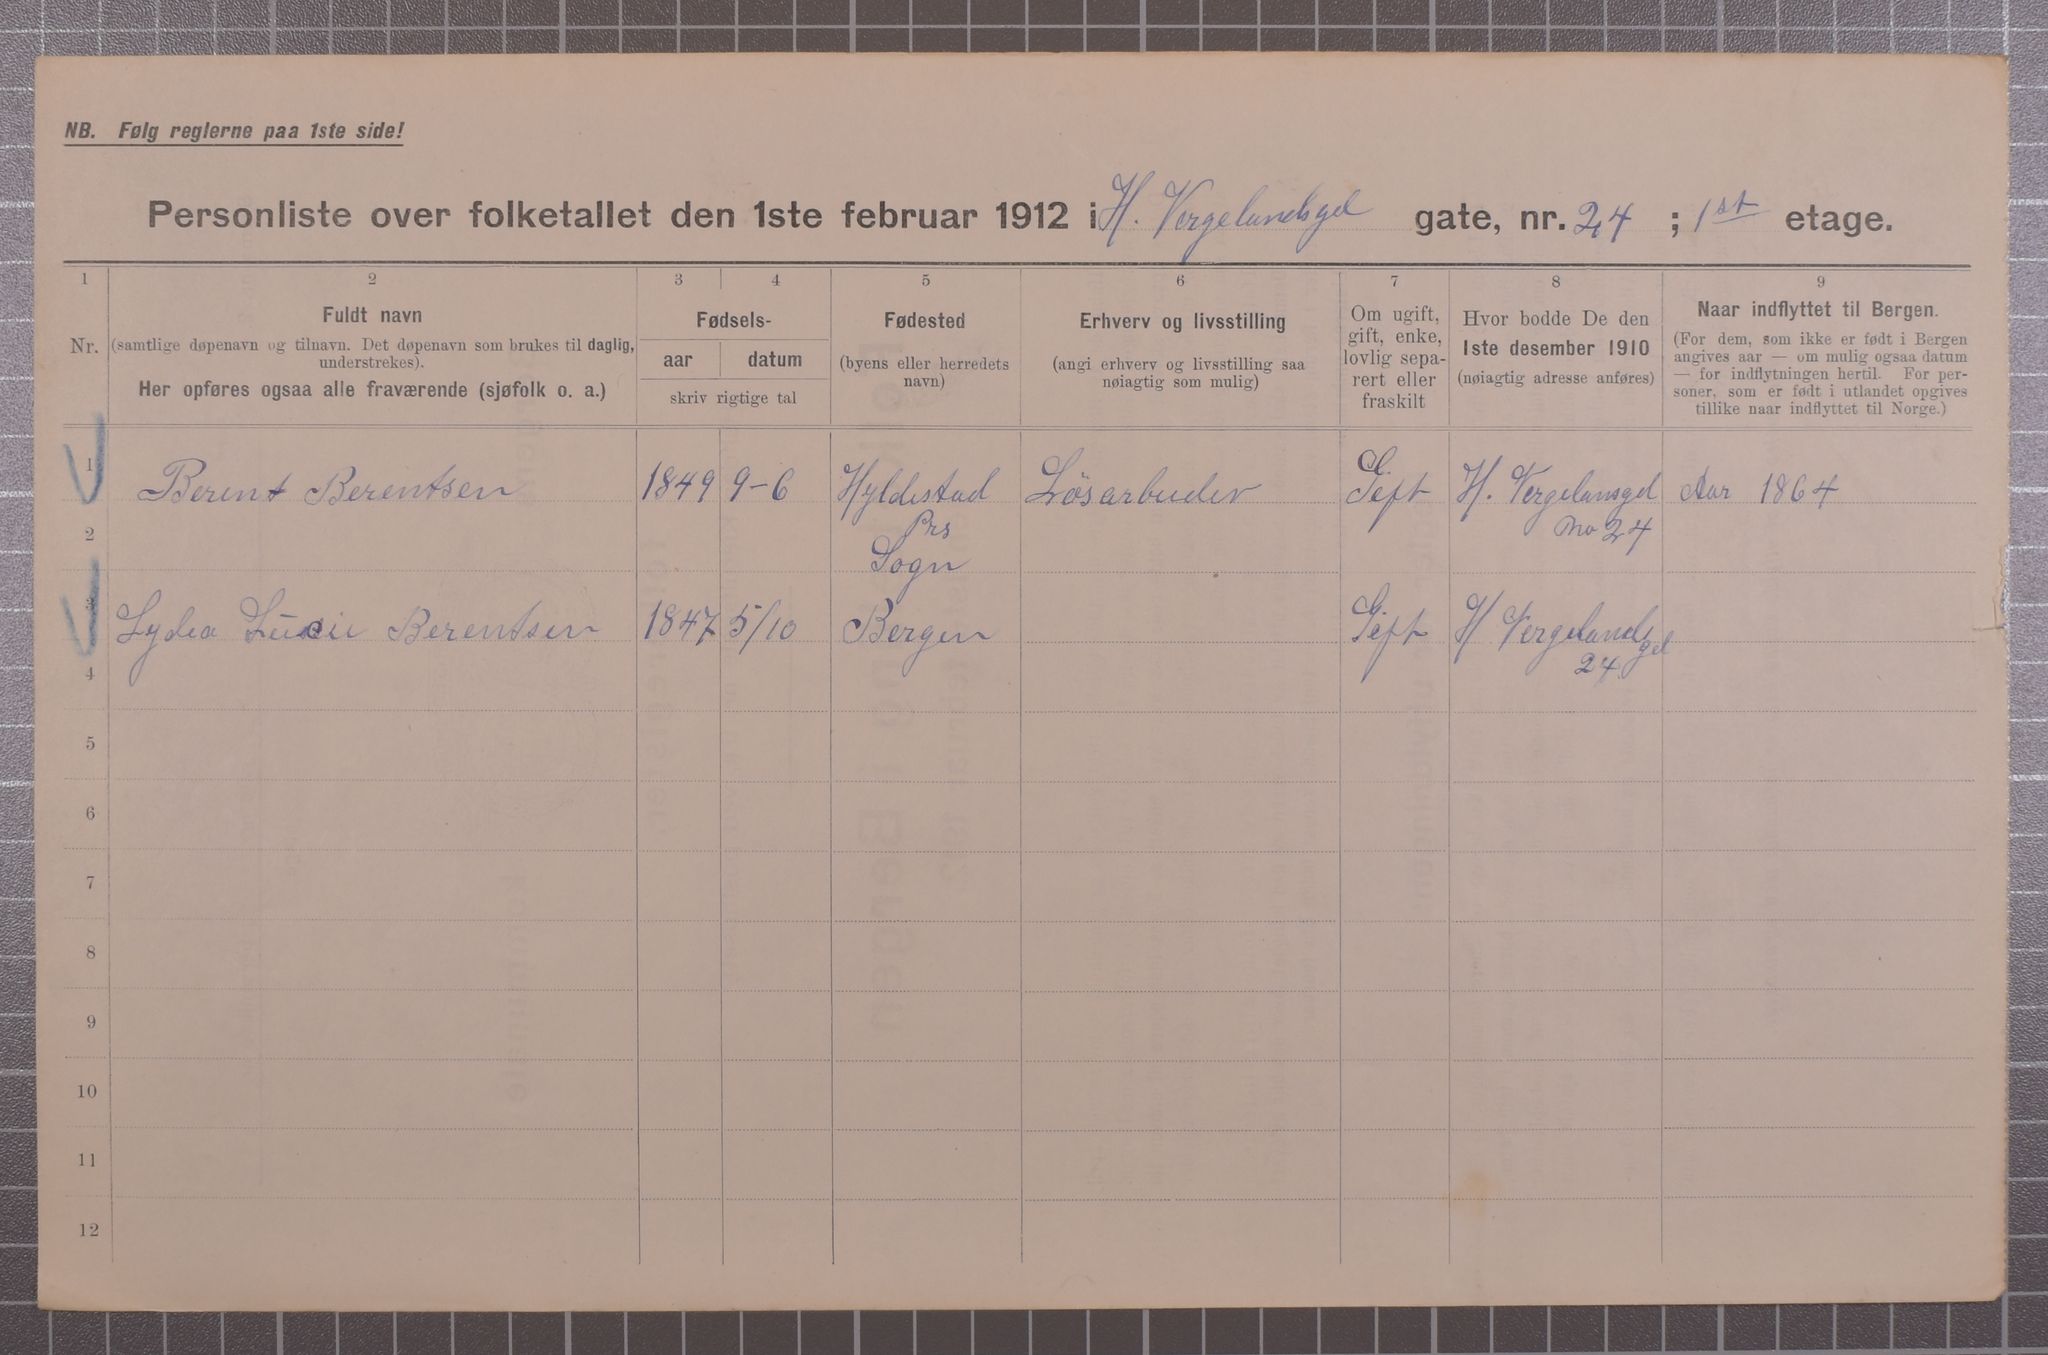 NB. Følg reglerne paa 1ste side!
Personliste over folketallet den 1ste februar 1912 i H. Vergelandsgd gate, nr. 24 ; 1st etage.
1 2 3 4 5 6 7 8 9
Nr.
Fuldt navn
(samtlige døpenavn og tilnavn. Det døpenavn som brukes til daglig, understrekes).
Her opføres ogsaa alle fraværende (sjøfolk o. a.)
Fødsels-
aar datum
skriv rigtige tal
Fødested
(byens eller herredets
navn)
Erhverv og livsstilling
(angi erhverv og livsstilling saa
nøiagtig som mulig)
Om ugift,
gift, enke,
lovlig sepa-
rert eller
fraskilt
Hvor bodde De den
1ste desember 1910
(nøiagtig adresse anføres)
Naar indflyttet til Bergen.
(For dem, som ikke er født i Bergen
angives aar — om mulig ogsaa datum
— for indflytningen hertil. For per-
soner, som er født i utlandet opgives
tillike naar indflyttet til Norge.)
1 Berent Berentsen 1849 9-6 Hyldestad Løsarbeider Gift H. Vergelansgd Aar 1864
Prs no 24
2
Sogn
3 Lydea Lucie Berentsen 1847 5/10 Bergen Gift H Vergelandsgd
24
4
5
6
7
8
9
10
11
12